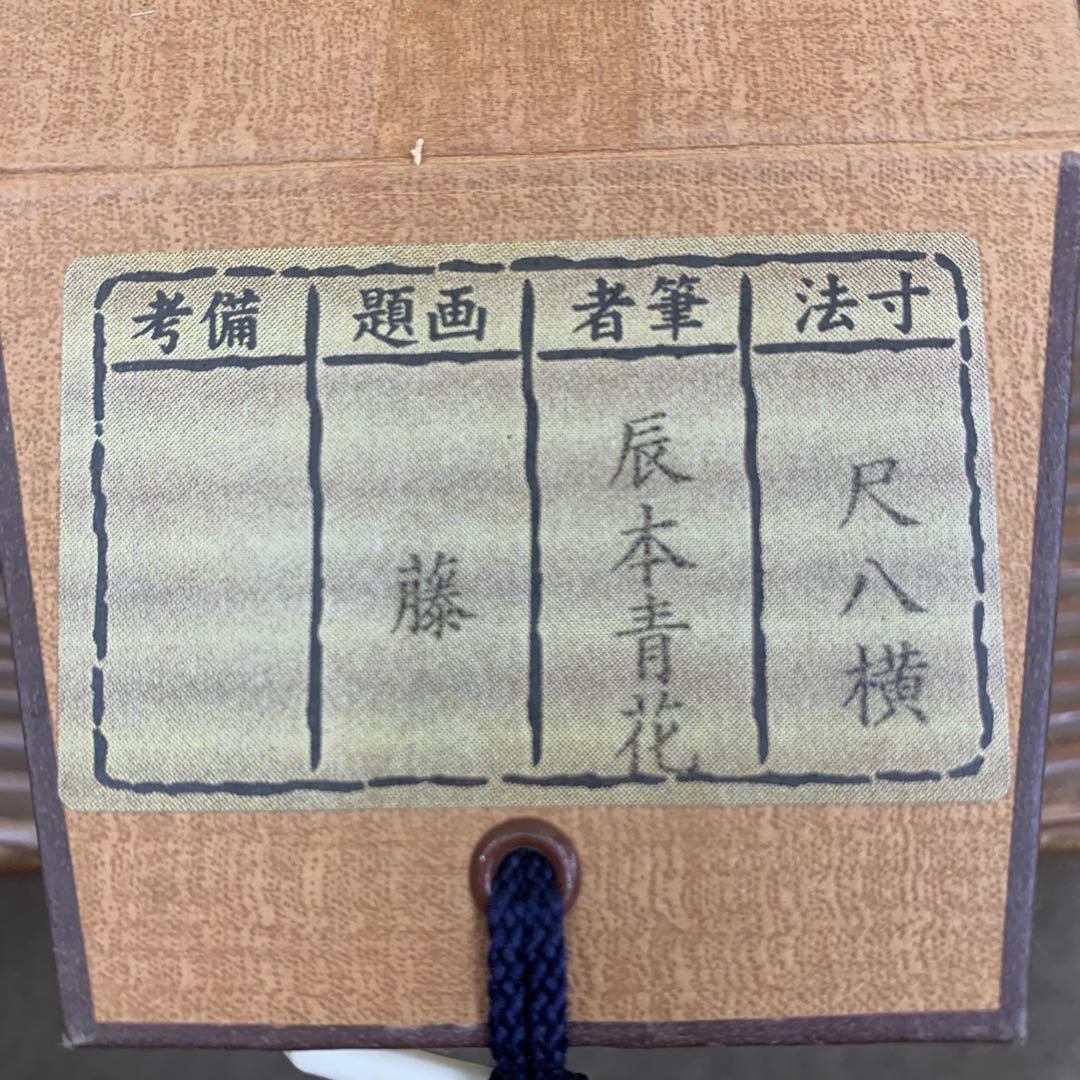 寸法
尺八横
筆者
辰本青花
画題
藤
備考